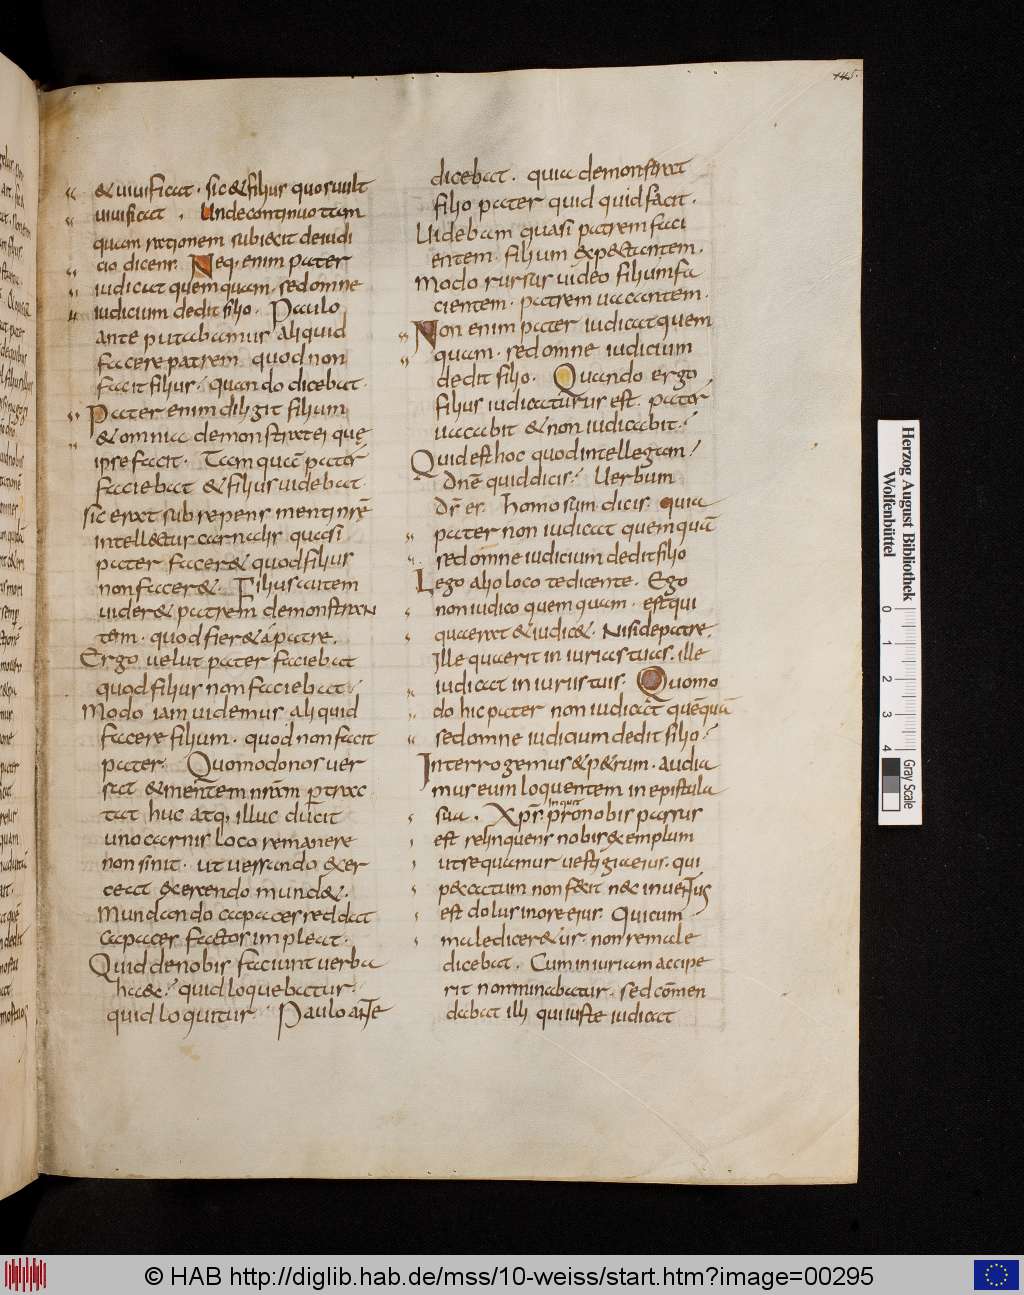 145.
& uiuificat · sic & filius quos uult
uiuificat · Unde continuo tam
quam rationem subiecit de iudi
cio dicens · Neq; enim pater
iudicat quemquam · sed omne
iudicium dedit filio · Paulo
ante putabamus aliquid
facere patrem quod non
facit filius · quando dicebat ·
Pater enim diligit filium
& omnia demonstrat ei quę
ipse facit · Tamquā pater
faciebat & filius uidebat ·
sic erat subrepens menti nr̄ę
intellectus carnalis quasi
pater facer& quod filius
non facer& · Filius autem
uider& patrem demonstran
tem · quod fier& a patre ·
Ergo uelut pater faciebat
quod filius non faciebat ·
Modo iam uidemus aliquid
facere filium · quod non facit
pater · Quomodo nos uer
sat & mentem nr̄am ptrac
tat huc atq; illuc ducit
uno carnis loco remanere
non sinit · ut uersando exer
ceat exercendo mund& ·
Mundando capaces reddat
capaces factos impleat ·
Quid de nobis faciunt uerba
haec · quid loquebatur ·
quid loquitur · Paulo ante
dicebat · quia demonstrat
filio pater quidquid facit ·
Uidebam quasi patrem faci
entem · filium expectantem ·
Modo rursus uideo filium fa
cientem · patrem uacantem ·
Non enim pater iudicat quem
quam · sed omne iudicium
dedit filio · Quando ergo
filius iudicaturus est · pater
uacabit & non iudicabit ·
Quid est hoc quod intellegam ·
Dnē quid dicis · Uerbum
dī es · homo sum dicis · quia
pater non iudicat quemquā
sed omne iudicium dedit filio
Lego alio loco te dicente · Ego
non iudico quemquam · est qui
quaerat & iudic& · Nisi de patre ·
Ille quaerit iniurias tuas · ille
iudicat iniuriis tuis · Quomo
do hic pater non iudicat quēquā
sed omne iudicium dedit filio ·
Interrogemus & p&rum · audia
mus eum loquentem in epistula
sua · Xps̄ inquit pro nobis passus
est relinquens nobis exemplum
ut sequamur uestigia eius · qui
peccatum non fecit nec inuentus
est dolus in ore eius · Qui cum
malediceretur · non remale
dicebat · Cum iniuriam accipe
rit non minabatur · sed cōmen
dabat illi qui iuste iudicat
Herzog August Bibliothek
Wolfenbüttel
0 1 2 3 4
Gray Scale
© HAB http://diglib.hab.de/mss/10-weiss/start.htm?image=00295